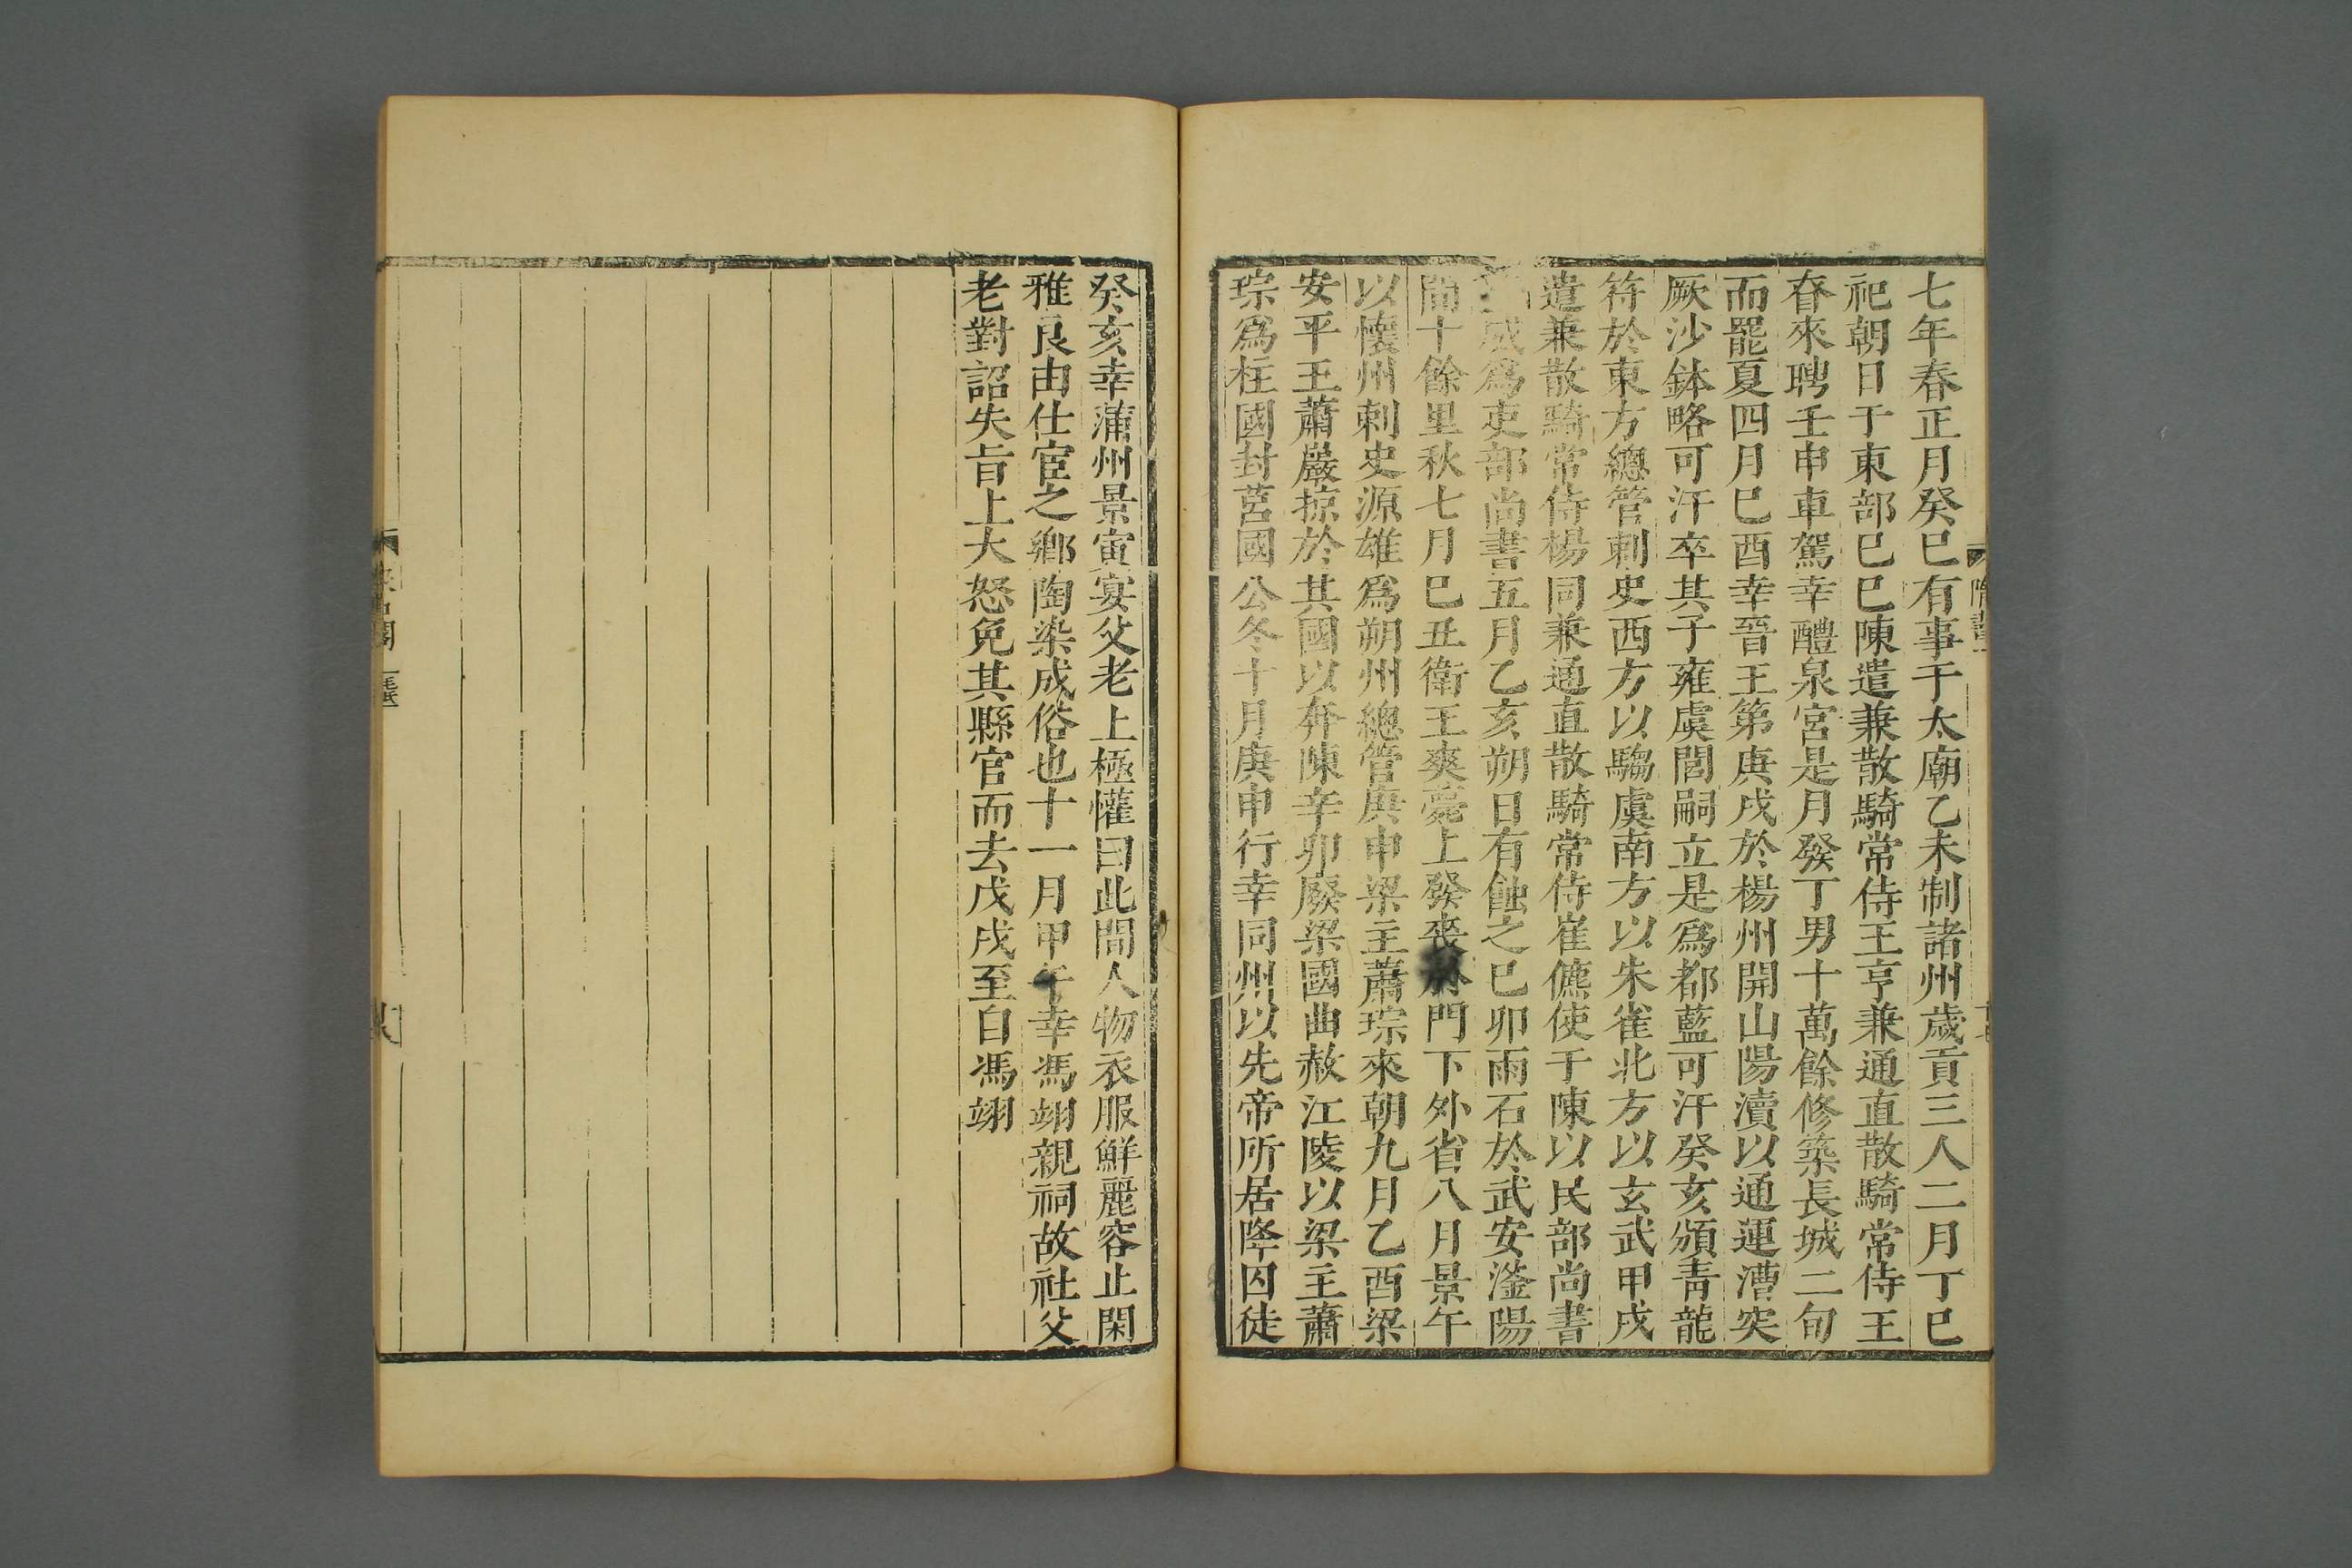 七年春正月癸巳有事于太廟乙未制諸州歲貢三人二月丁巳
祀朝日于東郊己巳陳遣兼散騎常侍王亨兼通直散騎常侍王
眘來聘壬申車駕幸醴泉宮是月發丁男十萬餘修築長城二旬
而罷夏四月己酉幸晉王第庚戌於楊州開山陽瀆以通運漕突
厥沙鉢略可汗卒其子雍虞閭嗣立是爲都藍可汗癸亥頒青龍
符於東方總管刺史西方以騶虞南方以朱雀北方以玄武甲戌
遣兼散騎常侍楊同兼通直散騎常侍崔儦使于陳以民部尚書
威爲吏部尚書五月乙亥朔日有蝕之己卯雨石於武安滏陽
間十餘里秋七月己丑衛王爽薨上發喪於門下外省八月景午
以懷州刺史源雄爲朔州總管庚申梁主蕭琮來朝九月乙酉梁
安平王蕭巖掠於其國以奔陳辛卯廢梁國曲赦江陵以梁主蕭
琮爲柱國封莒國公冬十月庚申行幸同州以先帝所居降囚徒
癸亥幸蒲州景寅宴父老上極懽曰此間人物衣服鮮麗容止閑
雅良由仕宦之鄉陶染成俗也十一月甲午幸馮翊親祠故社父
老對詔失旨上大怒免其縣官而去戊戌至自馮翊